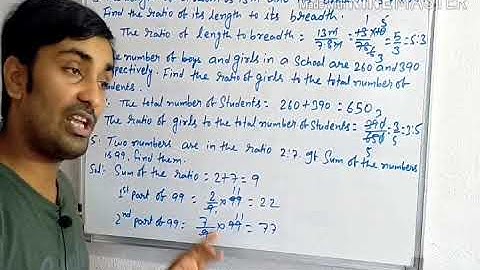 Find the ratio of its length to its breadth.
The ratio of Length to breadth = 13m/7.8m = 13×10/78 = 5/3 = 5:3
number of boys and girls in a School are 260 and 390
respectively. Find the ratio of girls to the total number of
students.
The total number of Students = 260+390 = 650
The ratio of girls to the total number of Students = 390/650 = 3/5 = 3:5
5. Two numbers are in the ratio 2:7. If Sum of the numbers
is 99, find them.
Sol: Sum of the ratio = 2+7 = 9
1st part of 99 = 2/9 × 99 = 22
2nd part of 99 = 7/9 × 99 = 77